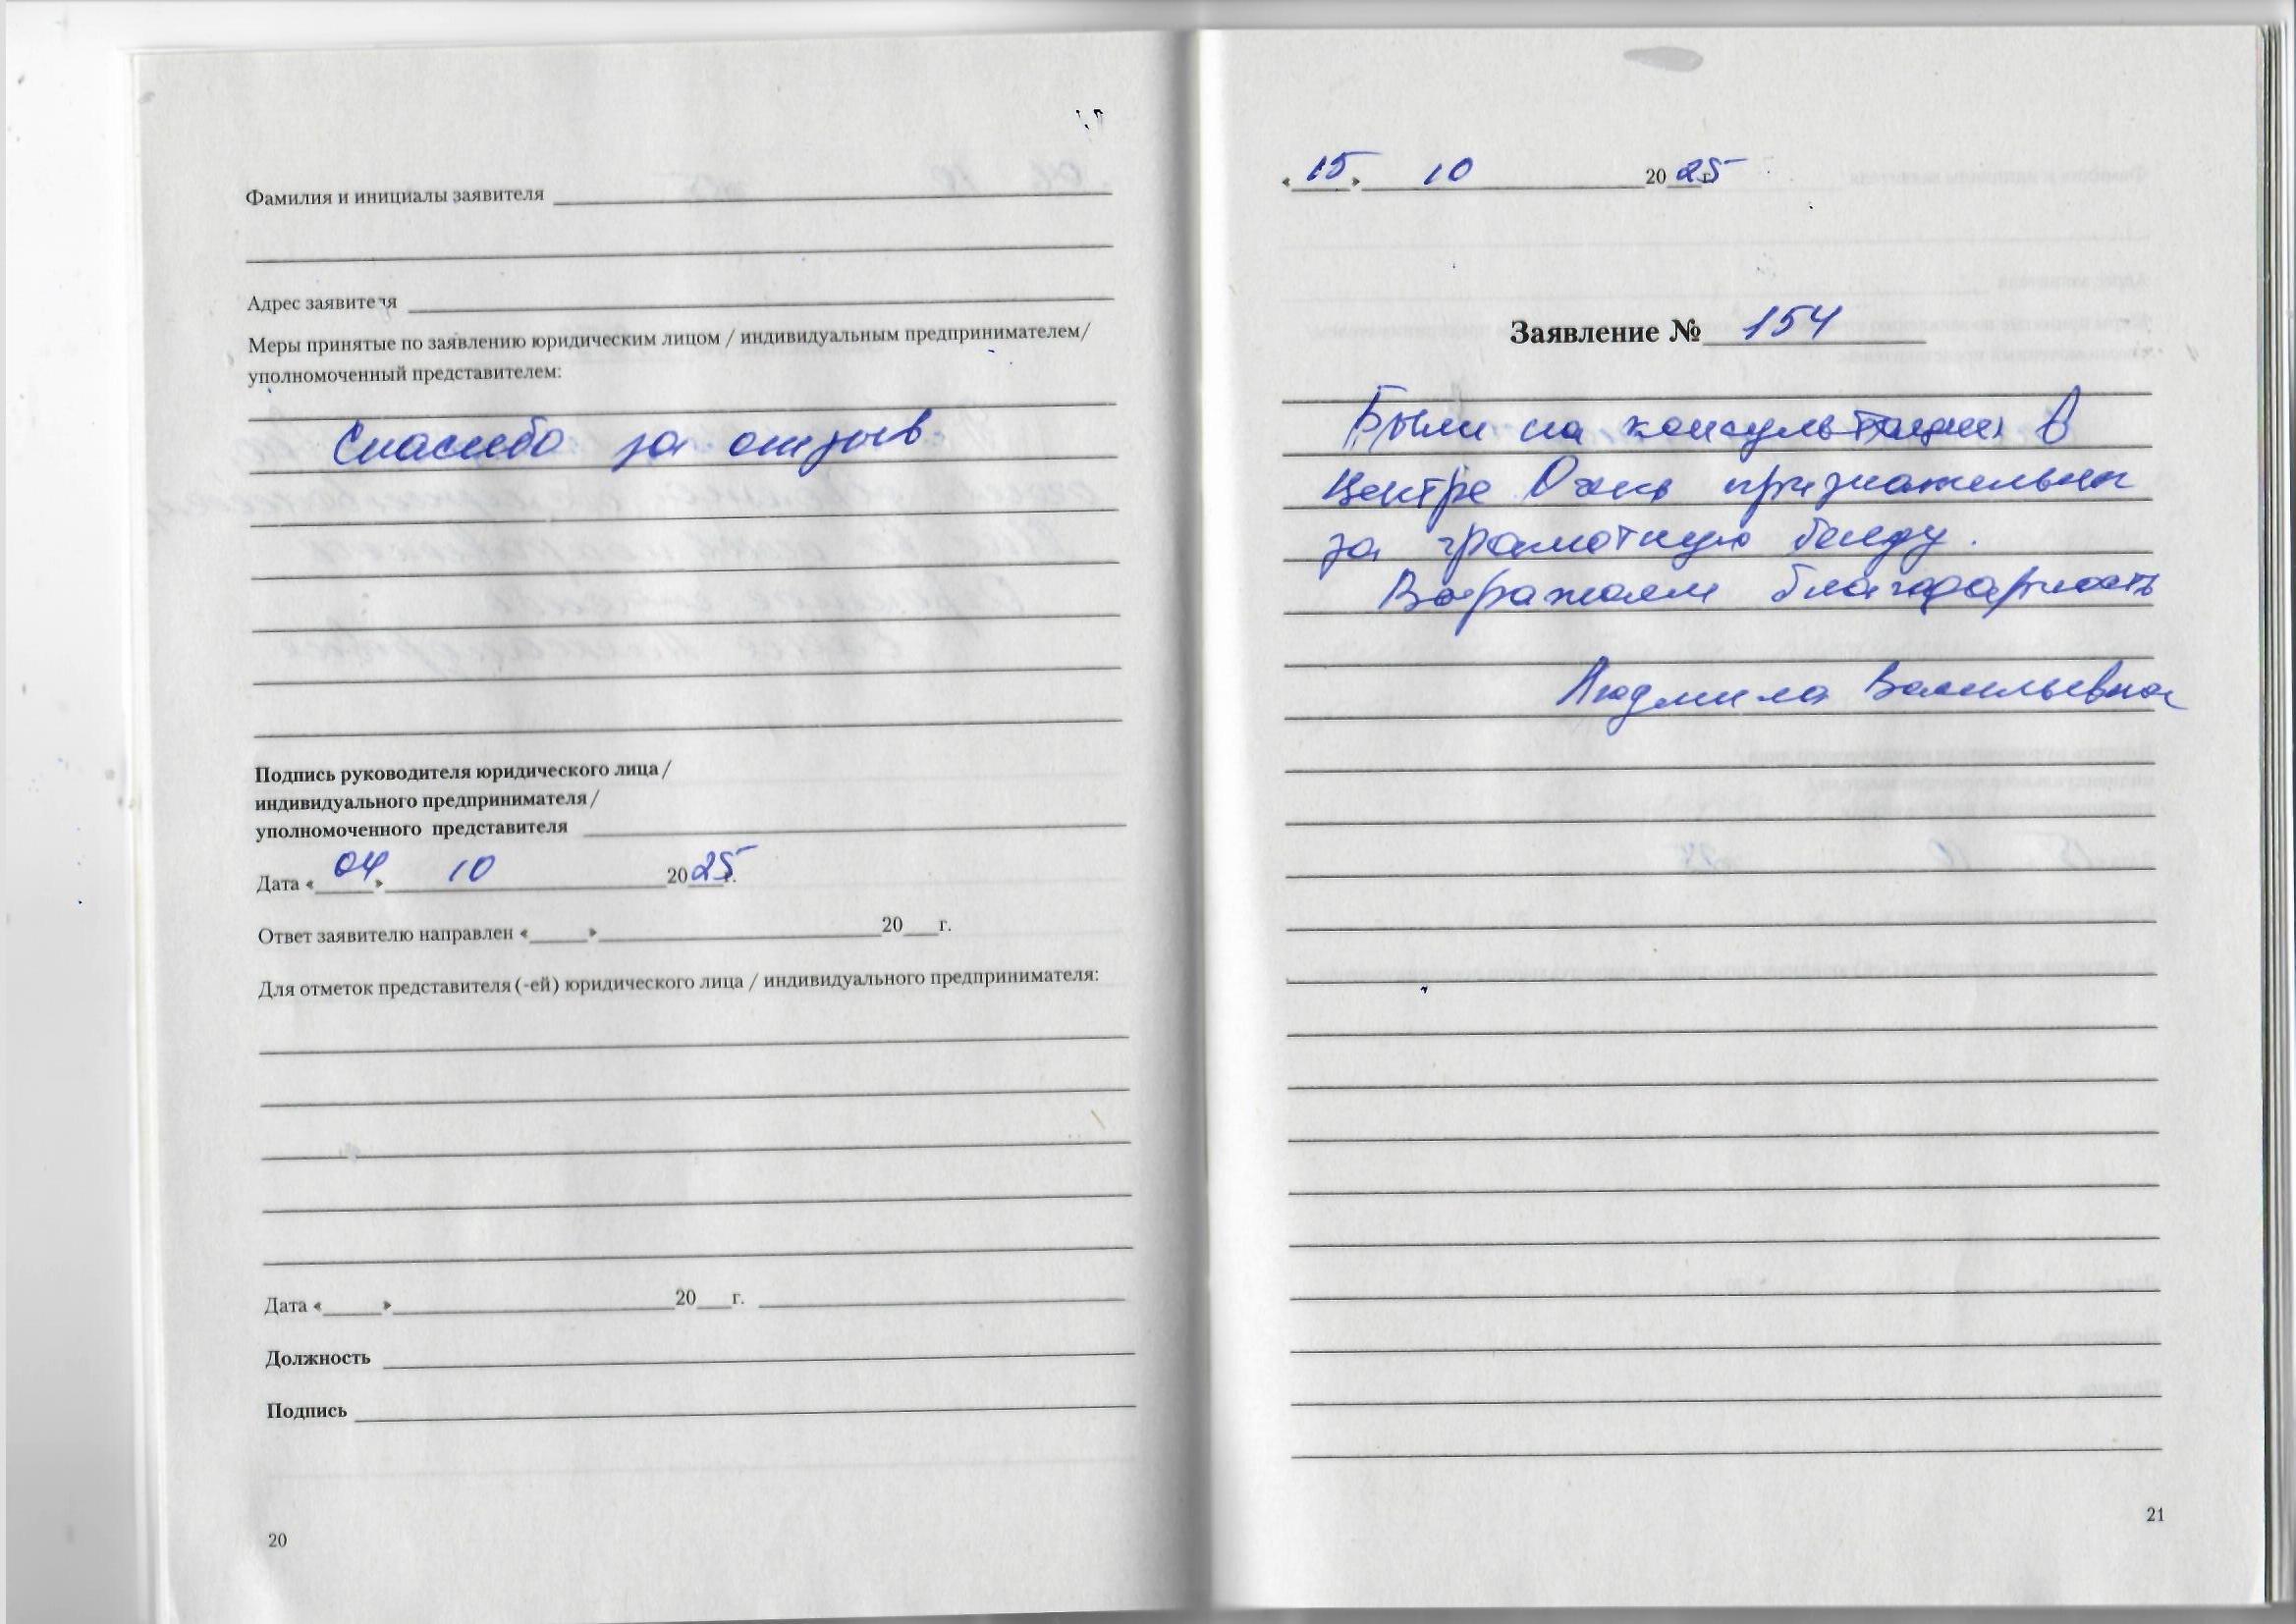 Фамилия и инициалы заявителя
Адрес заявителя
Меры принятые по заявлению юридическим лицом / индивидуальным предпринимателем/
уполномоченный представителем:
Спасибо за отзыв
Подпись руководителя юридического лица /
индивидуального предпринимателя /
уполномоченного представителя
Дата «04» 10 2025г.
Ответ заявителю направлен «____»____20__г.
Для отметок представителя (-ей) юридического лица / индивидуального предпринимателя:
Дата «____»____20__г.
Должность
Подпись
20
«15» 10 2025г.
Заявление № 154
Были на консультации в
Центре Очень признательны
за грамотную беседу.
Выражаем благодарность
Людмила Васильевна
21